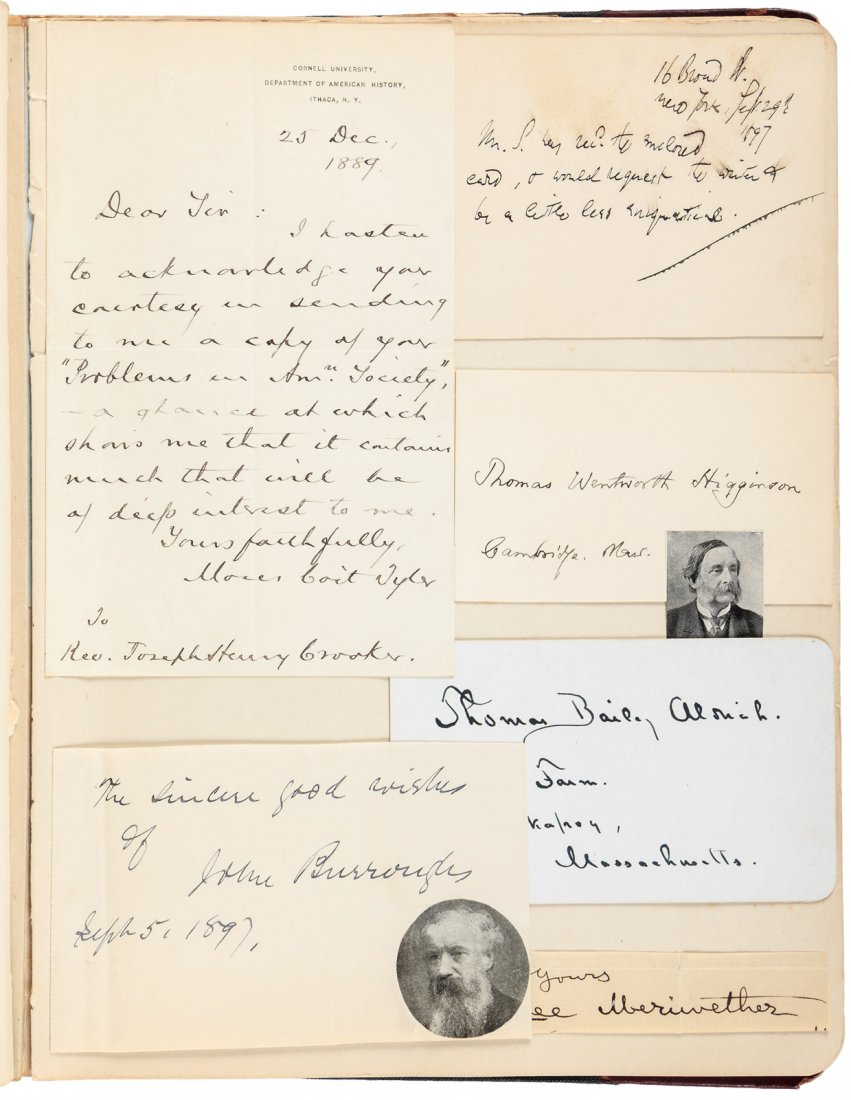 CORNELL UNIVERSITY,
DEPARTMENT OF AMERICAN HISTORY,
ITHACA, N. Y.
25 Dec.,
1889.
Dear Sir :
I hasten
to acknowledge your
courtesy in sending
to me a copy of your
"Problems in Amn. Society",
— a glance at which
shows me that it contains
much that will be
of deep interest to me.
Yours faithfully,
Moses Coit Tyler
To
Rev. Joseph Henry Crooker.
16 Broad St.
New York, Sept 29th
1897
Mr. S. has rec'd the enclosed
card, & would request the writer to
be a little less enigmatical.
Thomas Wentworth Higginson
Cambridge, Mass.
Thomas Bailey Aldrich.
Farm.
kapog,
Massachusetts.
The sincere good wishes
of
John Burroughs
Sept 5, 1897,
Yours
ee Meriwether